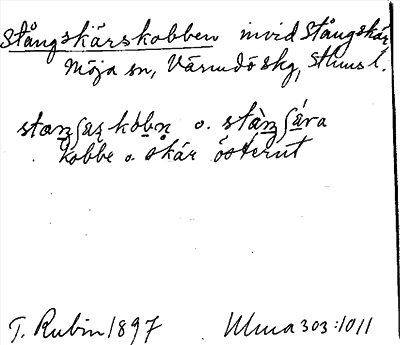 Stångskärskobben invid Stångskär
Möja sn, Värmdö skg, Sthms l.
kobbe o. skär österut
T. Rubin 1897 Ulma 303:1011